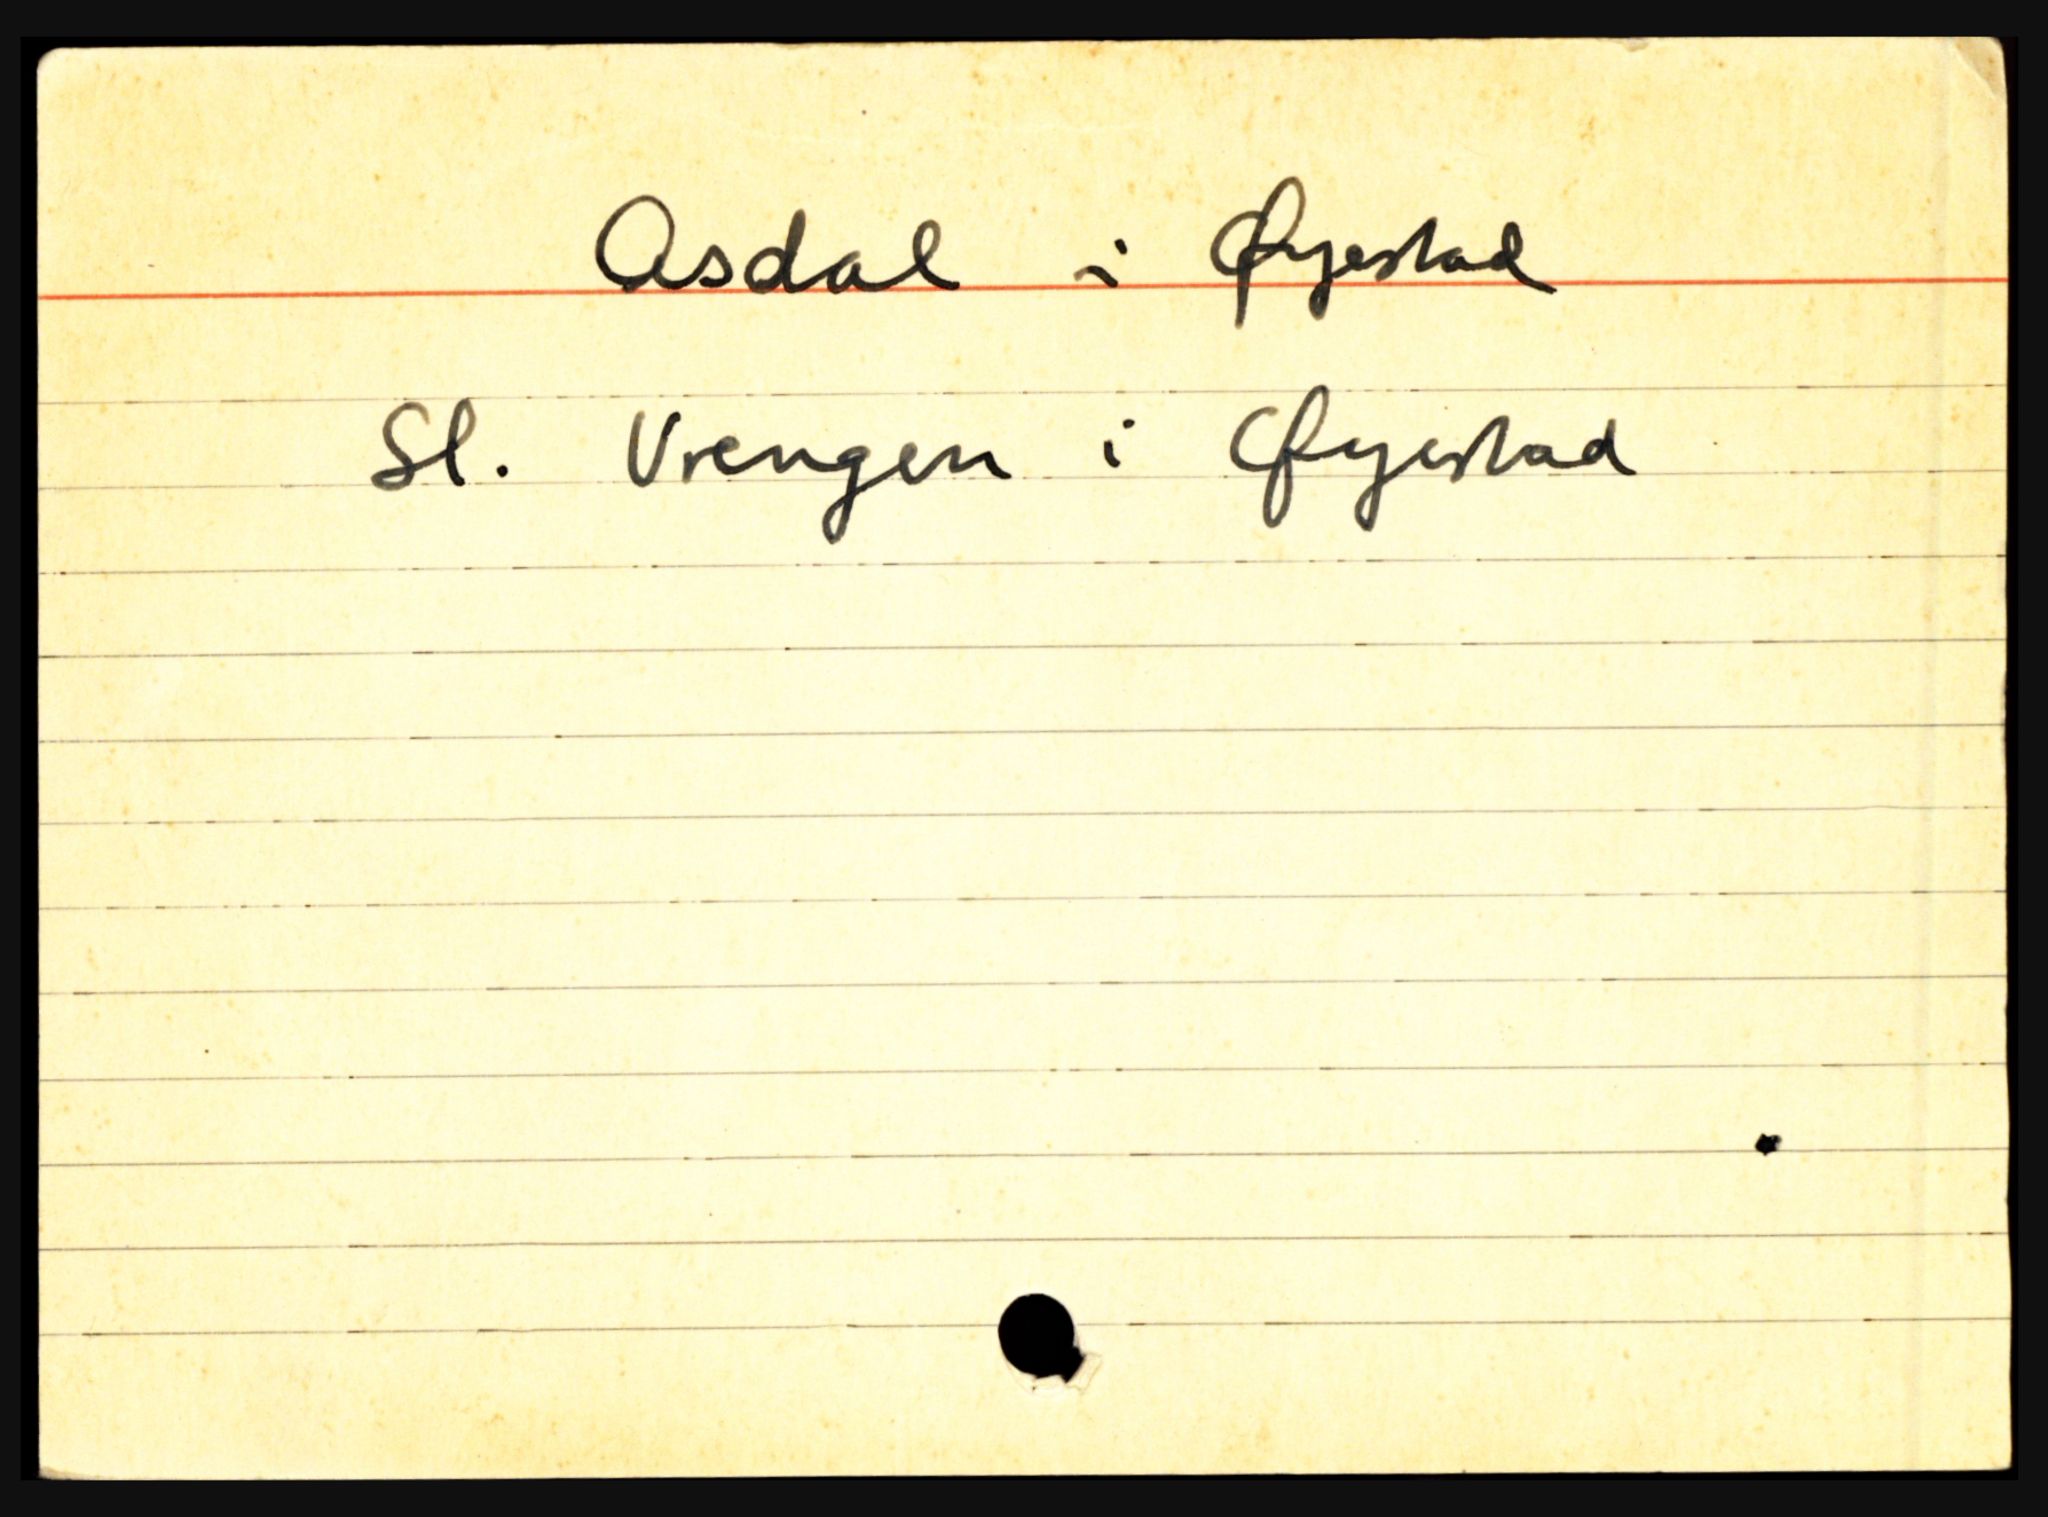 Asdal i Øyestad
Sl. Vrengen i Øyestad